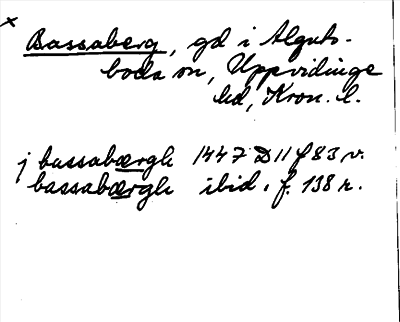 x
Bassaberg, gd i Alguts-
boda sn, Uppvidinge
hd, Kron. l.
j bassabærgh 1447 D 11 f 83 v.
bassabærgh ibid. f. 138 r.